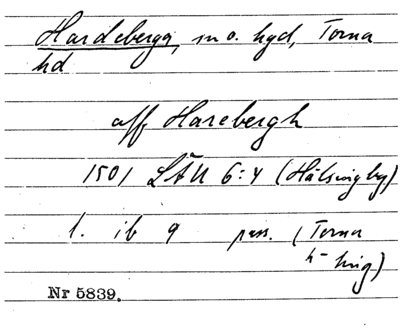 Hardeberga, sn o. hgd, Torna
hd
aff Harebergh
1501 LÄU 6:4 (Hälsingby)
l. ib 9 pass. (Torna
h-ting)
Nr 5839.